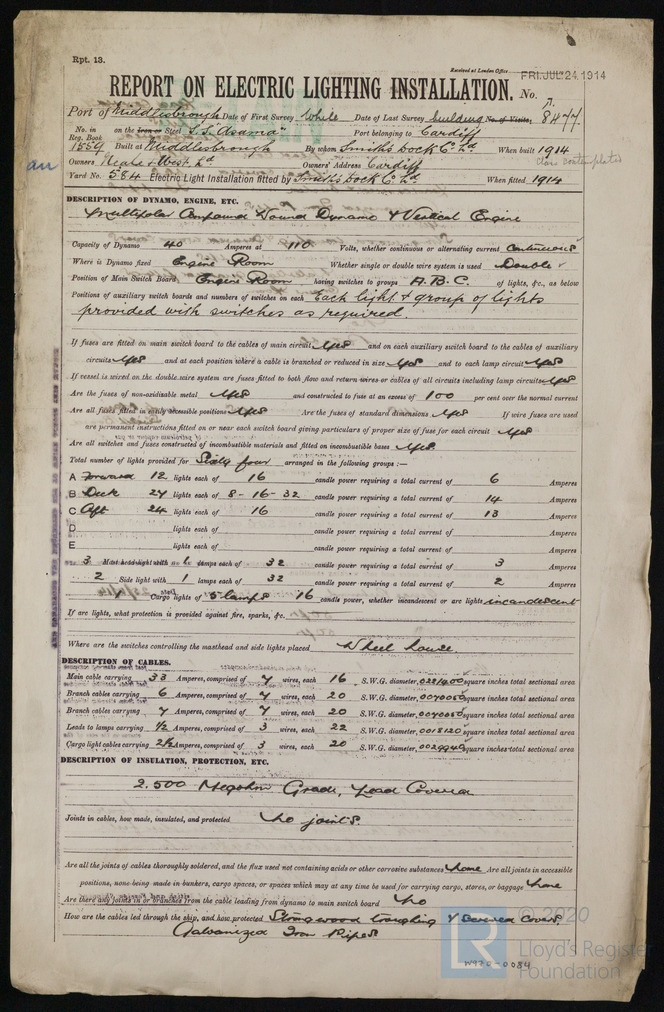 Rpt. 13.
Received at London Office FRI. JUL 24, 1914
REPORT ON ELECTRIC LIGHTING INSTALLATION. No. 8477
Port of Middlesbrough Date of First Survey While Date of Last Survey building No. of Visits
No. in Reg. Book 1559 on the Iron or Steel S.S. "Asama" Port belonging to Cardiff
Built at Middlesbrough By whom Smith's Dock Co. Ld. When built 1914
Owners Neale & West, Ld Owners' Address Cardiff
Yard No. 584 Electric Light Installation fitted by Smith's Dock Co. Ld. When fitted 1914
DESCRIPTION OF DYNAMO, ENGINE, ETC.
Multipolar Compound Wound Dynamo & Vertical Engine
Capacity of Dynamo 40 Amperes at 110 Volts, whether continuous or alternating current Continuous
Where is Dynamo fixed Engine Room Whether single or double wire system is used Double
Position of Main Switch Board Engine Room having switches to groups A.B.C. of lights, &c., as below
Positions of auxiliary switch boards and numbers of switches on each Each light & group of lights
provided with switches as required.
If fuses are fitted on main switch board to the cables of main circuit Yes and on each auxiliary switch board to the cables of auxiliary
circuits Yes and at each position where a cable is branched or reduced in size Yes and to each lamp circuit Yes
If vessel is wired on the double wire system are fuses fitted to both flow and return wires or cables of all circuits including lamp circuits Yes
Are the fuses of non-oxidizable metal Yes and constructed to fuse at an excess of 100 per cent over the normal current
Are all fuses fitted in easily accessible positions Yes Are the fuses of standard dimensions Yes If wire fuses are used
are permanent instructions fitted on or near each switch board giving particulars of proper size of fuse for each circuit Yes
Are all switches and fuses constructed of incombustible materials and fitted on incombustible bases Yes.
Total number of lights provided for Sixty four arranged in the following groups :—
A Forward 12 lights each of 16 candle power requiring a total current of 6 Amperes
B Deck 27 lights each of 8-16-32 candle power requiring a total current of 14 Amperes
C Aft 24 lights each of 16 candle power requiring a total current of 13 Amperes
D lights each of candle power requiring a total current of Amperes
E lights each of candle power requiring a total current of Amperes
3 Mast head light with 1 lamps each of 32 candle power requiring a total current of 3 Amperes
2 Side light with 1 lamps each of 32 candle power requiring a total current of 2 Amperes
Cargo lights of 5 lamps 16 candle power, whether incandescent or arc lights incandescent
If arc lights, what protection is provided against fire, sparks, &c.
Where are the switches controlling the masthead and side lights placed Wheel house.
DESCRIPTION OF CABLES.
Main cable carrying 33 Amperes, comprised of 7 wires, each 16 S.W.G. diameter, .0221400 square inches total sectional area
Branch cables carrying 6 Amperes, comprised of 7 wires, each 20 S.W.G. diameter, .0070050 square inches total sectional area
Branch cables carrying 7 Amperes, comprised of 7 wires, each 20 S.W.G. diameter, .0070050 square inches total sectional area
Leads to lamps carrying 1/2 Amperes, comprised of 3 wires, each 22 S.W.G. diameter, .0018120 square inches total sectional area
Cargo light cables carrying 2 1/2 Amperes, comprised of 3 wires, each 20 S.W.G. diameter, .0029940 square inches total sectional area
DESCRIPTION OF INSULATION, PROTECTION, ETC.
2.500 Megohm Grade, Lead Covered
Joints in cables, how made, insulated, and protected No joints.
Are all the joints of cables thoroughly soldered, and the flux used not containing acids or other corrosive substances None Are all joints in accessible
positions, none being made in bunkers, cargo spaces, or spaces which may at any time be used for carrying cargo, stores, or baggage None
Are there any joints in or branches from the cable leading from dynamo to main switch board No
How are the cables led through the ship, and how protected Strong wood troughing & screwed covers,
Galvanized Iron Pipes
© 2020
LR Lloyd's Register
Foundation
W976-0084